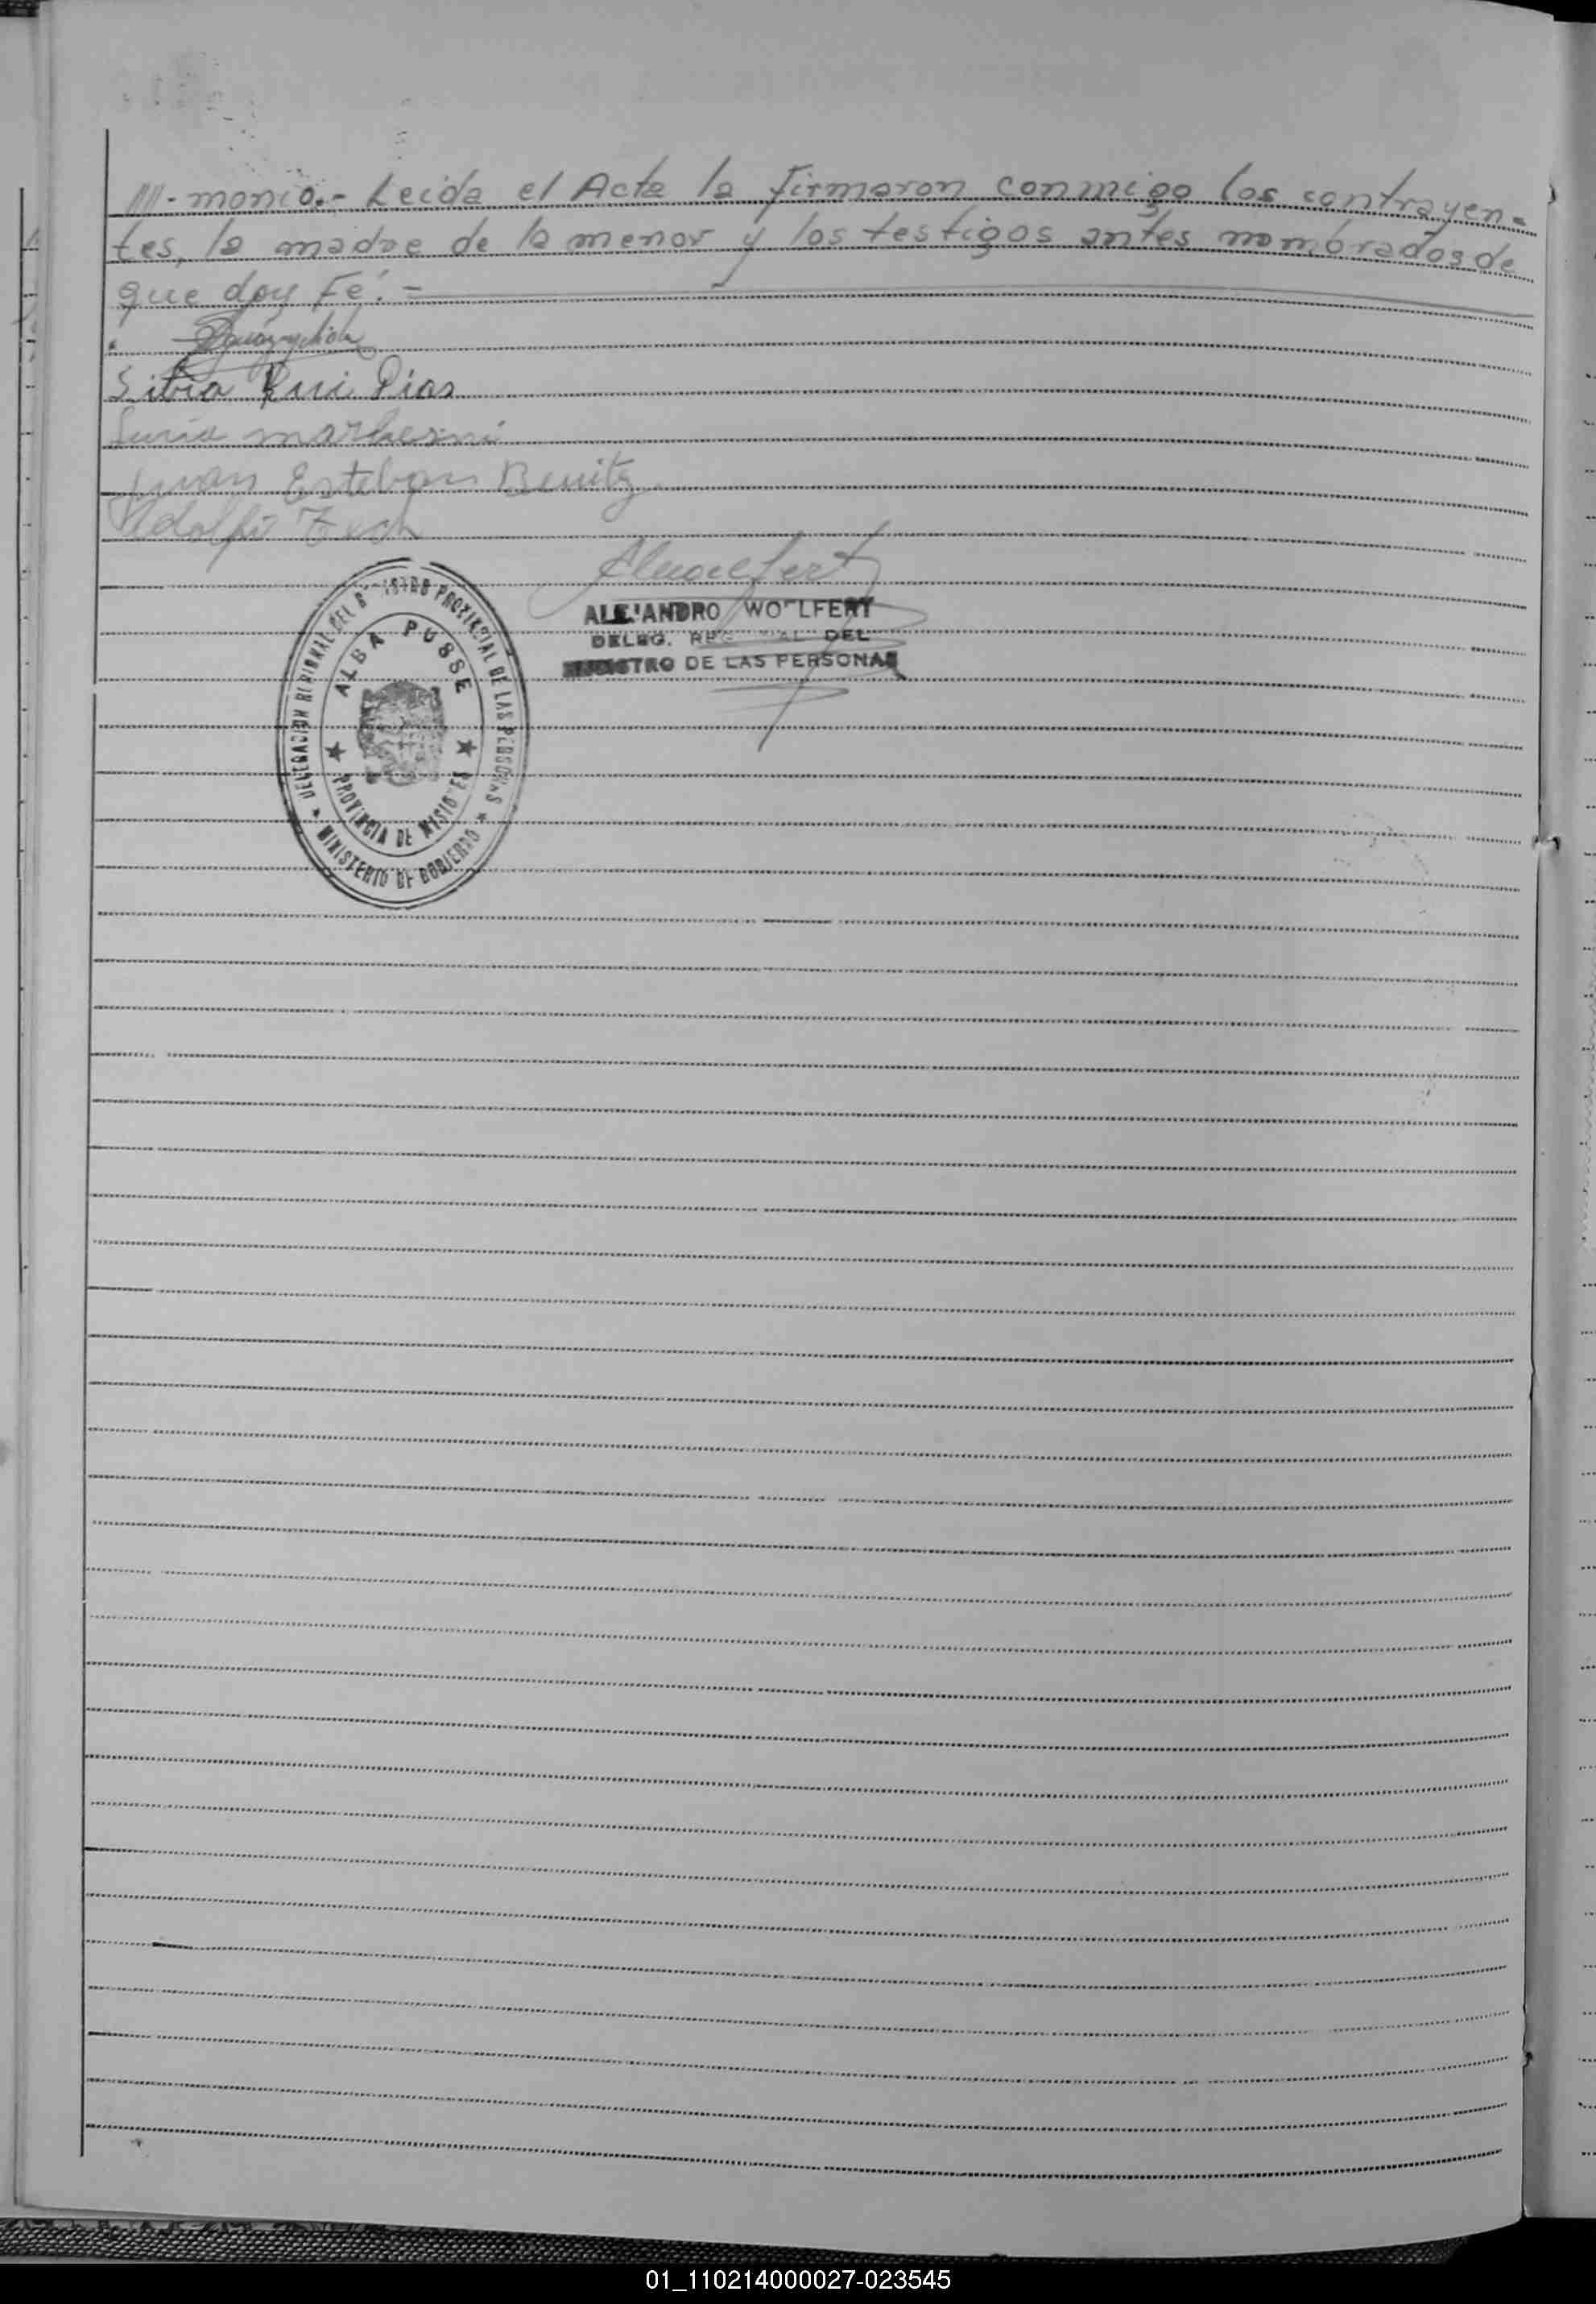 ///-monio.- Leida el Acta la firmaron conmigo los contrayen=
tes, la madre de la menor y los testigos antes nombrados de
que doy Fé.=
Juan Esteban Benitz
Adolfo
ALEJANDRO WOLFERT
DELEG. REGIONAL DEL
REGISTRO DE LAS PERSONAS
DELEGACION REGIONAL DEL REGISTRO PROVINCIAL DE LAS PERSONAS
ALBA PUSSE
PROVINCIA DE MISIONES
MINISTERIO DE GOBIERNO
01_110214000027-023545